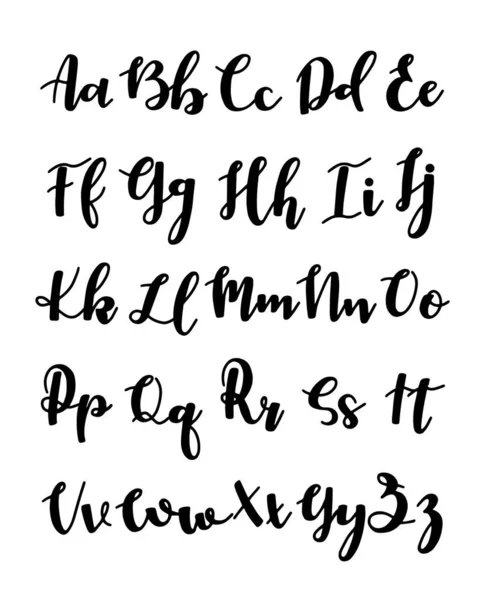 Aa Bb Cc Dd Ee
Ff Gg Hh Ii Jj
Kk Ll Mm Nn Oo
Pp Qq Rr Ss Tt
Vv Ww Xx Yy Zz